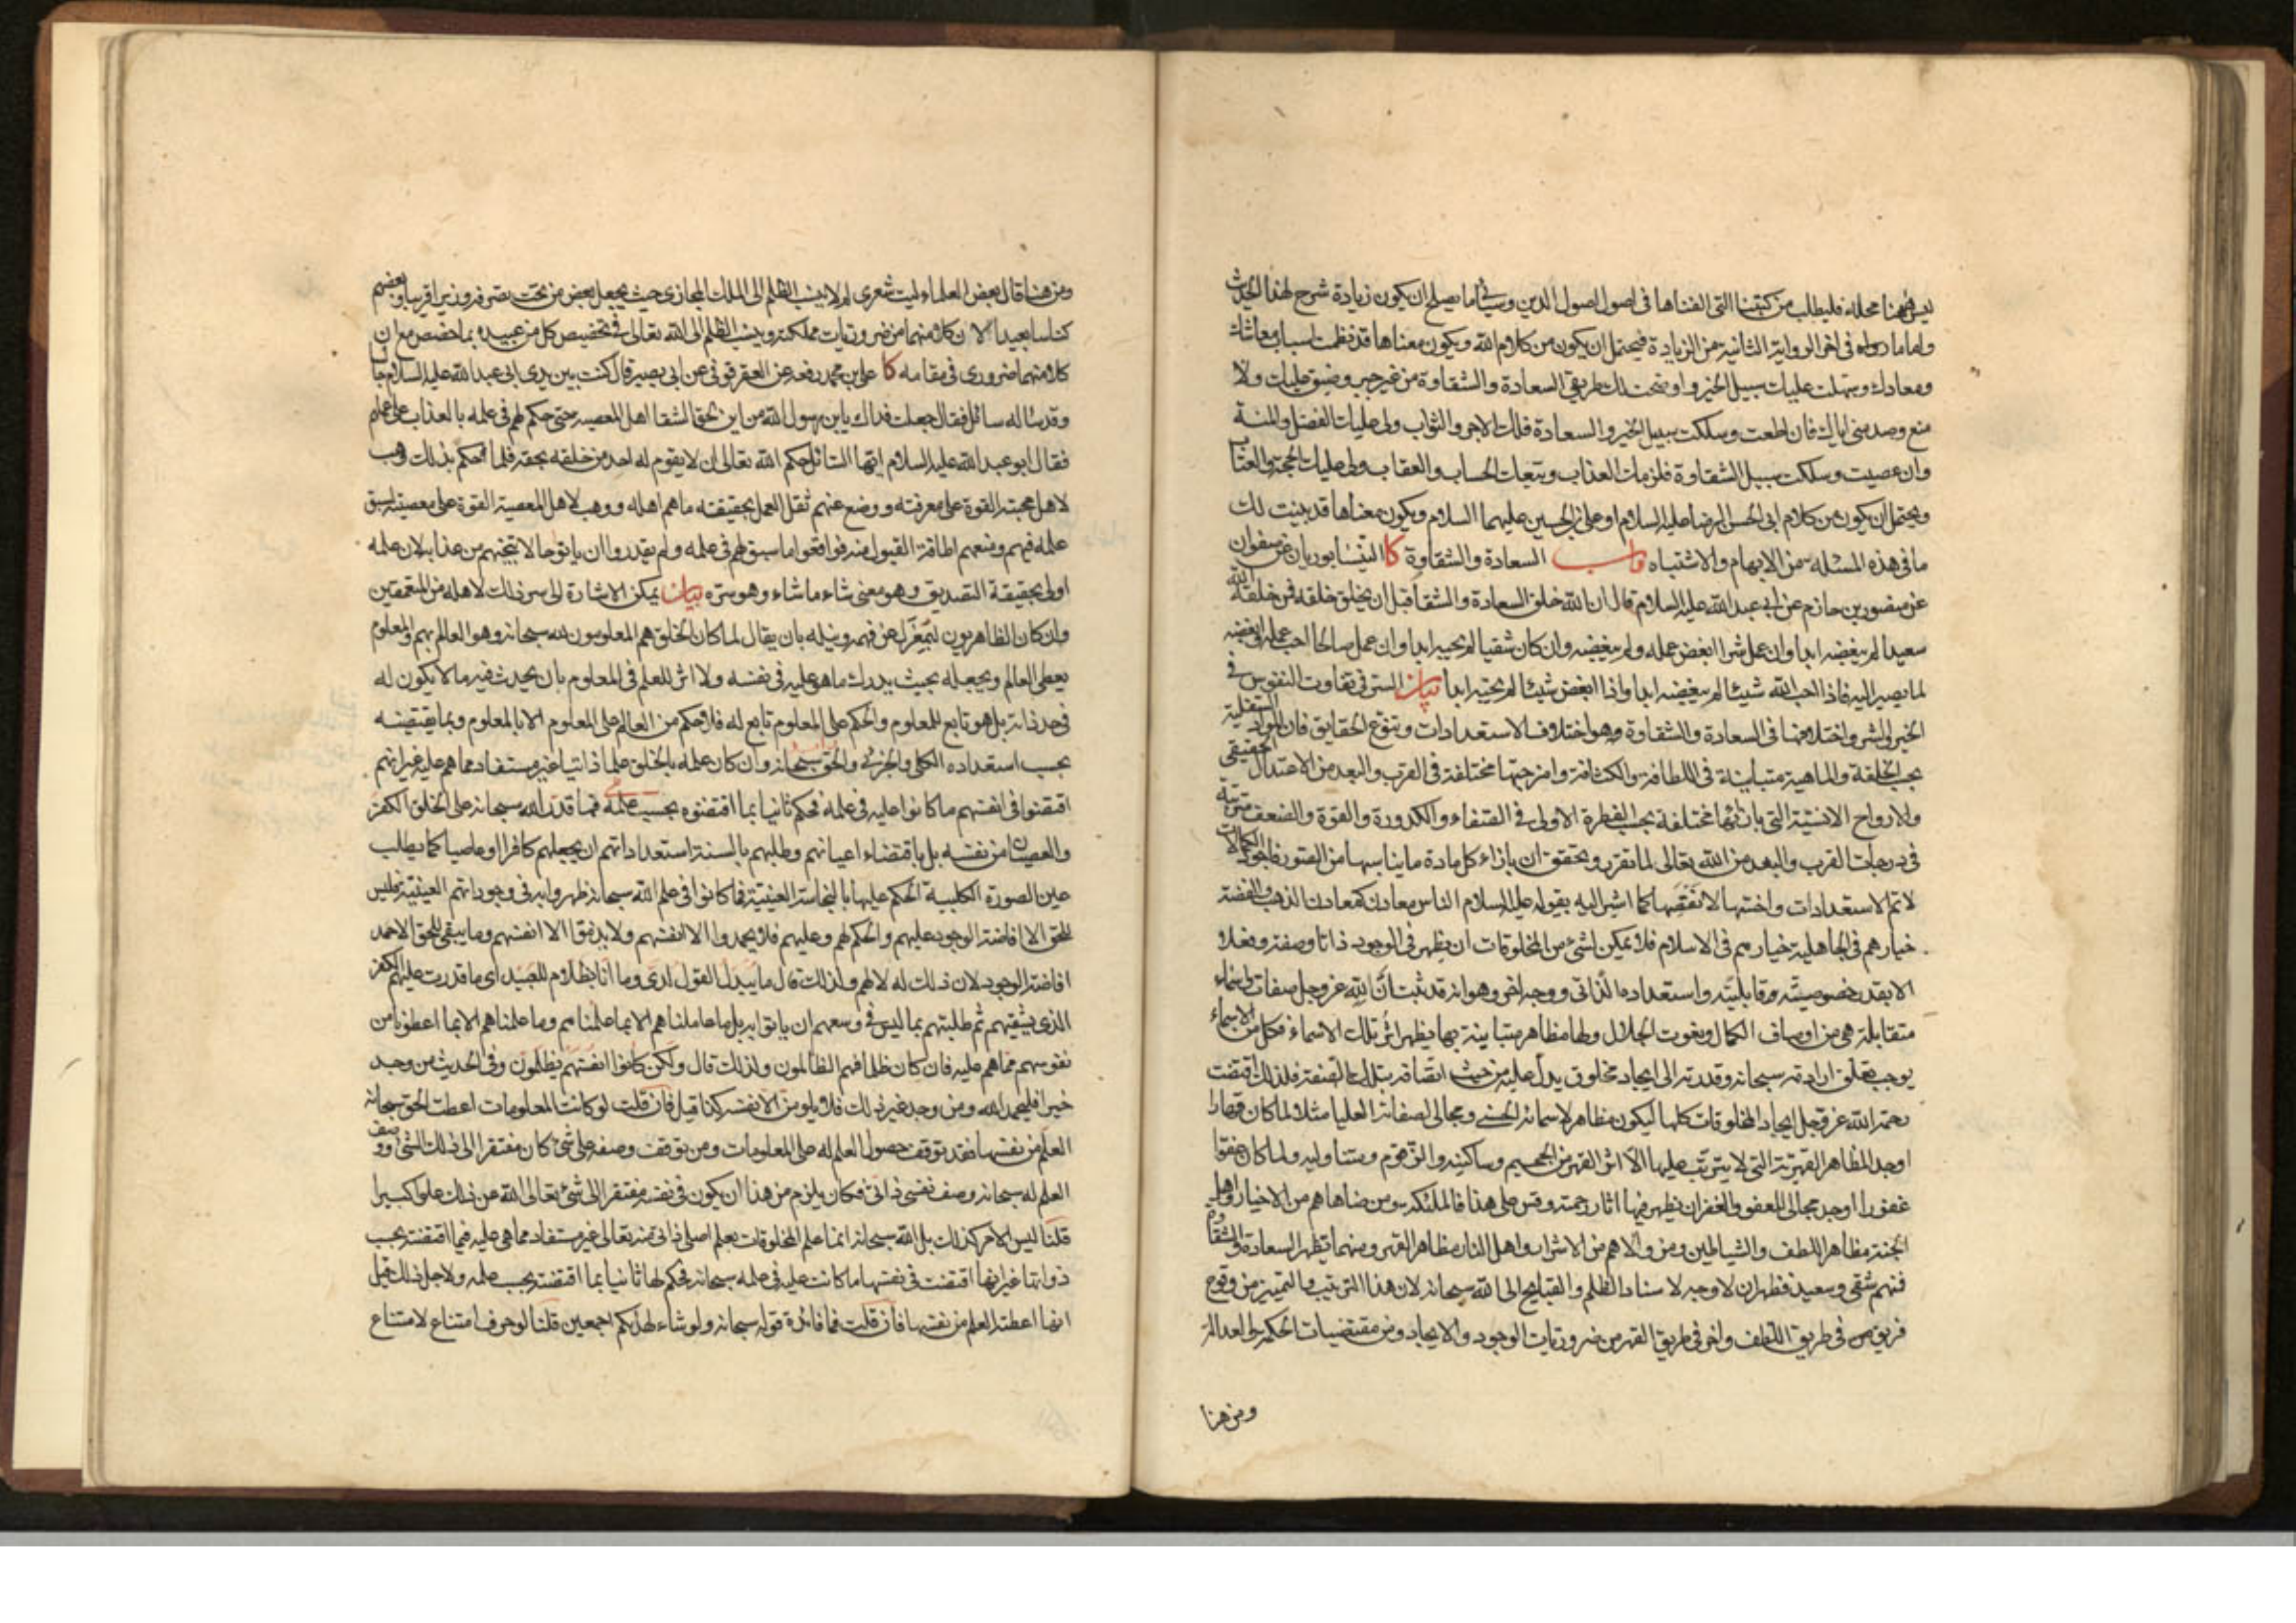 ليس ههنا محله فليطلب من كتبنا التي الفناها في اصول اصول الدين وسيأتي ما يصلح ان يكون زيادة شرح لهذا الحديث
واما ما رواه في اخر الرواية الثانية من الزيادة فيحتمل ان يكون من كلام الله ويكون معناها قد نظمت اسباب معاشك
ومعادك وسهلت عليك سبيل الخير واوضحت لك طريقي السعادة والشقاوة من غير جبر وضيق عليك ولا
منع وصد مني اياك فان اطعت وسلكت سبيل الخير والسعادة فلك الاجر والثواب ولي عليك الفضل والمنة
وان عصيت وسلكت سبيل الشقاوة فلزمك العذاب وتبعات الحساب والعقاب ولي عليك الحجة والعتاب
ويحتمل ان يكون من كلام ابي الحسن الرضا عليه السلام او علي بن الحسين عليهما السلام ويكون معناها قد بينت لك
ما في هذه المسئلة من الابهام والاشتباه باب السعادة والشقاوة كا النيسابوريان عن صفوان
عن منصور بن حازم عن ابي عبد الله عليه السلام قال ان الله خلق السعادة والشقا قبل ان يخلق خلقه فمن خلقه الله
سعيدا لم يبغضه ابدا وان عمل شرا ابغض عمله ولم يبغضه وان كان شقيا لم يحبه ابدا وان عمل صالحا احب عمله وابغضه
لما يصير اليه فاذا احب الله شيئا لم يبغضه ابدا واذا ابغض شيئا لم يحبه ابدا بيان السر في تفاوت النفوس في
الخير والشر واختلافها في السعادة والشقاوة هو اختلاف الاستعدادات وتنوع الحقايق فان المواد السفلية
بحسب الخلقة والماهية متباينة في اللطافة والكثافة وامزجتها مختلفة في القرب والبعد من الاعتدال الحقيقي
والارواح الانسية التي بازائها مختلفة بحسب الفطرة الاولى في الصفاء والكدورة والقوة والضعف مترتبة
في درجات القرب والبعد من الله تعالى لما تقرر وتحقق ان بازاء كل مادة ما يناسبها من الصور فاجود الكمالات
لاتم الاستعدادات واخسها لانقصها كما اشير اليه بقوله عليه السلام الناس معادن كمعادن الذهب والفضة
خيارهم في الجاهلية خيارهم في الاسلام فلا يمكن لشيء من المخلوقات ان يظهر في الوجود ذاتا وصفة وفعلا
الا بقدر خصوصيته وقابليته واستعداده الذاتي ووجه اخر وهو انه قد ثبت ان لله عز وجل صفات واسماء
متقابلة هي من اوصاف الكمال ونعوت الجلال ولها مظاهر متباينة بها يظهر اثر تلك الاسماء فكل من الاسماء
يوجب تعلق ارادته سبحانه وقدرته الى ايجاد مخلوق يدل عليه من حيث اتصافه بتلك الصفة فلذلك اقتضت
رحمة الله عز وجل ايجاد المخلوقات كلها ليكون مظاهر لاسمائه الحسنى ومجالي لصفاته العليا مثلا لما كان قهارا
اوجد المظاهر القهرية التي لا يترتب عليها الا اثر القهر من الجحيم وساكنيه والزقوم ومتناوليه ولما كان عفوا
غفورا اوجد مجالي للعفو والغفران يظهر فيها اثار رحمته وقس على هذا فالملئكة ومن ضاهاهم من الاخيار واهل
الجنة مظاهر اللطف والشياطين ومن والاهم من الاشرار واهل النار مظاهر القهر ومنهما تظهر السعادة والشقاوة
فمنهم شقي وسعيد فظهر ان لا وجه لاسناد الظلم والقبايح الى الله سبحانه لان هذا الترتيب والتمييز من وقوع
فريق في طريق اللطف واخر في طريق القهر من ضروريات الوجود والايجاد ومن مقتضيات الحكمة والعدالة
ومن هنا
ومن هنا قال بعض العلماء ليت شعري لم لا ينسب الظلم الى الملك المجازي حيث يجعل بعض من تحت تصرفه وزيرا قريبا وبعضهم
كناسا بعيدا لان كلا منهما من ضروريات مملكته وينسب الظلم الى الله تعالى في تخصيص كل من عبيده بما خصص مع ان
كلا منهما ضروري في مقامه كا علي بن محمد رفعه عن العقرقوفي عن ابي بصير قال كنت بين يدي ابي عبد الله عليه السلام جالسا
وقد سأله سائل فقال جعلت فداك يابن رسول الله من اين لحق الشقا اهل المعصية حتى حكم لهم في علمه بالعذاب على عملهم
فقال ابو عبد الله عليه السلام ايها السائل حكم الله تعالى ان لا يقوم له احد من خلقه بحقه فلما حكم بذلك وهب
لاهل محبته القوة على معرفته ووضع عنهم ثقل العمل بحقيقة ما هم اهله ووهب لاهل المعصية القوة على معصيته لسبق
علمه فيهم ومنعهم اطاقة القبول منه فواقعوا ما سبق لهم في علمه ولم يقدروا ان ياتوا حالا تنجيهم من عذابه لان علمه
اولى بحقيقة التصديق وهو معنى شاء ما شاء وهو سره بيان يمكن الاشارة الى سر ذلك لاهله من المتعمقين
وان كان الظاهريون لبمعزل عن فهمه ونيله بان يقال لما كان الخلق هم المعلومون لله سبحانه وهو العالم بهم والمعلوم
يعطي العالم ويجعله بحيث يدرك ما هو عليه في نفسه ولا اثر للعلم في المعلوم بان يحدث فيه ما لا يكون له
في حد ذاته بل هو تابع للمعلوم والحكم على المعلوم تابع له فلا حكم من العالم على المعلوم الا بالمعلوم وبما يقتضيه
بحسب استعداده الكلي والجزئي والحق سبحانه وان كان علمه بالخلق علما ذاتيا غير مستفاد مما هم عليه غير انهم
اقتضوا في انفسهم ما كانوا عليه في علمه فحكم ثانيا بما اقتضوه بحسب علمه فما قدر الله سبحانه على الخلق الكفر
والعصيان من نفسه بل باقتضاء اعيانهم وطلبهم بالسنة استعداداتهم ان يجعلهم كافرا او عاصيا كما يطلب
عين الصورة الكلبية الحكم عليها بالنجاسة العينية فما كانوا في علم الله سبحانه ظهروا به في وجوداتهم العينية فليس
للحق الا افاضة الوجود عليهم والحكم لهم وعليهم فلا يحمدوا الا انفسهم ولا يذموا الا انفسهم وما يبقى للحق الا حمد
افاضة الوجود لان ذلك له لا لهم ولذلك قال ما يبدل القول لدي وما انا بظلام للعبيد اي ما قدرت عليهم الكفر
الذي يشقيهم ثم طلبتهم بما ليس في وسعهم ان ياتوا به بل ما عاملناهم الا بما علمناهم وما علمناهم الا بما اعطونا من
نفوسهم مما هم عليه فان كان ظلما فهم الظالمون ولذلك قال ولكن كانوا انفسهم يظلمون وفي الحديث من وجد
خيرا فليحمد الله ومن وجد غير ذلك فلا يلومن الا نفسه كذا قيل فان قلت لو كانت المعلومات اعطت الحق سبحانه
العلم من نفسها فقد توقف حصول العلم له على المعلومات ومن توقف وصفه على شيء كان مفتقرا الى ذلك الشيء ووصف
العلم له سبحانه وصف نفسي ذاتي فكان يلزم من هذا ان يكون في نفسه مفتقرا الى شيء تعالى الله عن ذلك علوا كبيرا
قلنا ليس الامر كذلك بل الله سبحانه انما علم المخلوقات بعلم اصلي ذاتي منه تعالى غير مستفاد مما هي عليه فيما اقتضته بحسب
ذواتها غير انها اقتضت في نفسها ما كانت عليه في علمه سبحانه فحكم لها ثانيا بما اقتضته بحسب علمه ولاجل ذلك قيل
انها اعطته العلم من نفسها فان قلت فما فائدة قوله سبحانه ولو شاء لهديكم اجمعين قلنا لو حرف امتناع لامتناع